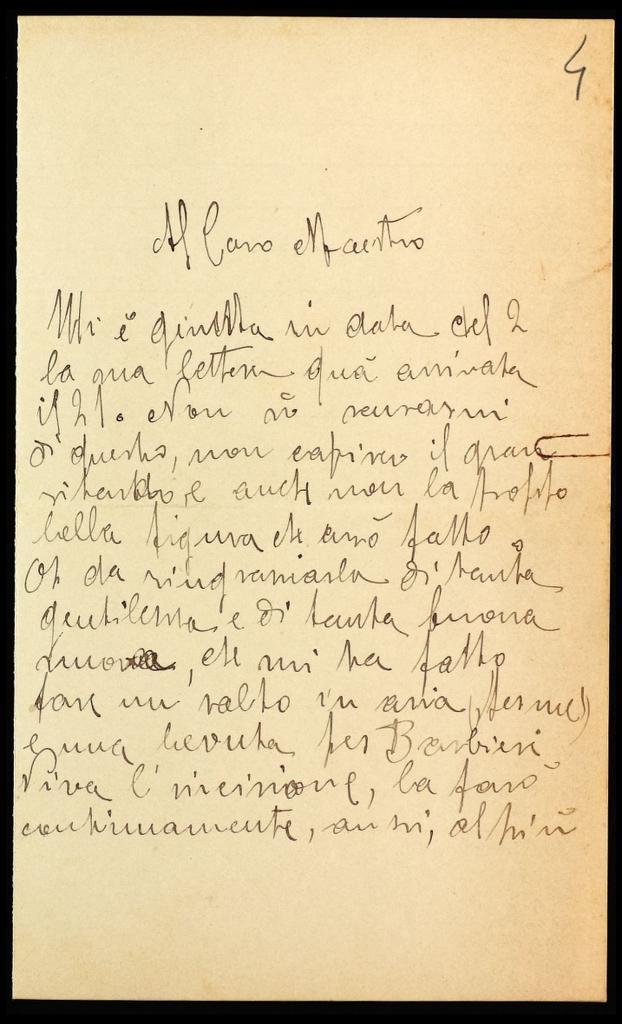 4
Al Caro Maestro
Mi è giuntta in data del 2
la sua lettera quà arrivata
il 21. Non sò scusarmi
di questo, non capisco il gran
ritardo, e anche non la troppo
bella figura che avrò fatto.
O da ringraziarla di tanta
gentilezza e di tanta buona
nuova, che mi ha fatto
fare un salto in aria (per me!)
e una bevuta per Barbieri
Viva l'incisione, la farò
continuamente, anzi, al più